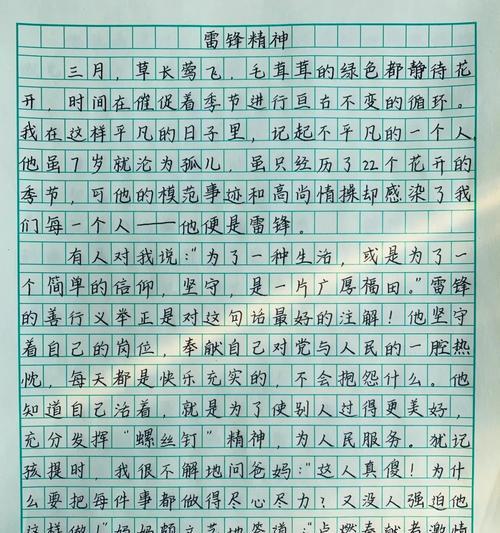 雷锋精神
三月，草长莺飞，毛茸茸的绿色都静待花
开，时间在催促着季节进行亘古不变的循环。
我在这样平凡的日子里，记起不平凡的一个人。
他虽7岁就沦为孤儿，虽只经历了22个花开的
季节，可他的模范事迹和高尚情操却感染了我
们每一个人——他便是雷锋。
有人对我说：“为了一种生活，或是为了一
个简单的信仰，坚守，是一片广厚福田。”雷锋
的善行义举正是对这句话最好的注解！他坚守
着自己的岗位，奉献自己对党与人民的一腔热
忱，每天都是快乐充实的，不会抱怨什么。他
知道自己活着，就是为了使别人过得更美好，
充分发挥“螺丝钉”精神，为人民服务。犹记
孩提时，我很不解地问爸妈：“这人真傻！为什
么要把每件事都做得尽心尽力？又没人强迫他
这样做！”妈妈颇文艺地答道：“点燃奉献者激情